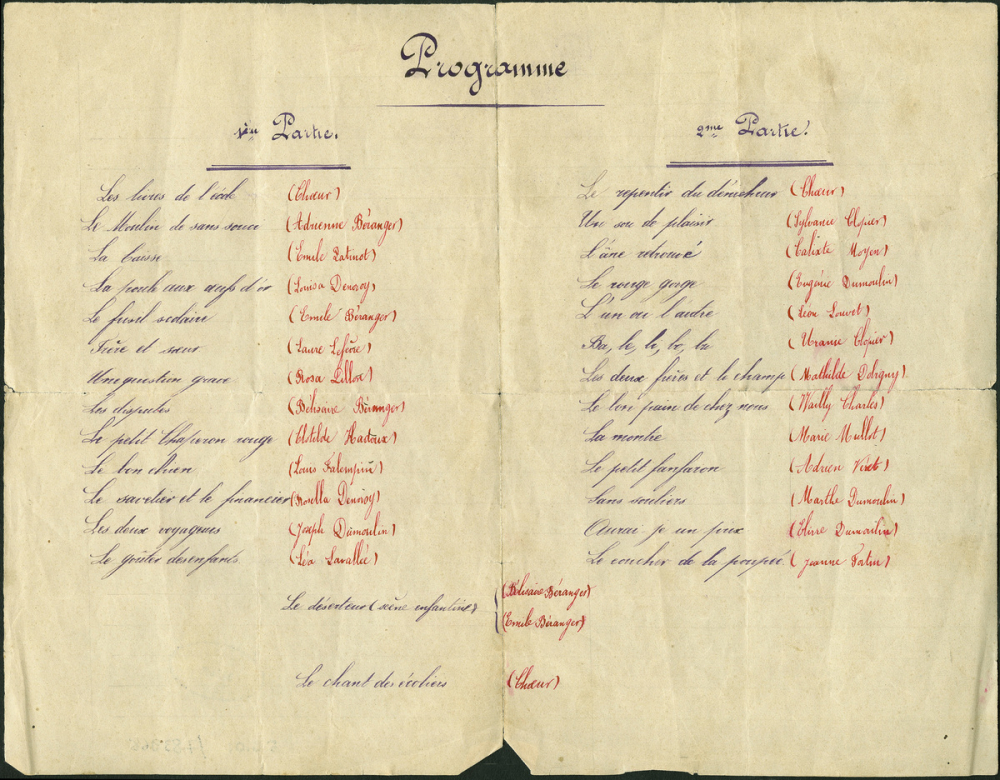 Programme
1ère Partie.
Les livres de l'école (Chœur)
Le Moulin de sans souci (Adrienne Béranger)
La (Emile Latinot)
La poule aux œufs d'or (Louisa Denoroy)
Le fusil scolaire (Emile Béranger)
Frère et sœur (Laure Lefèvre)
Une question grave (Rosa)
Les disputes (Bélisaire Béranger)
Le petit Chaperon rouge (Clotilde)
Le bon chien (Louis Falempin)
Le savetier et le financier (Rosella Denoroy)
Les deux voyageurs (Joseph Dumoulin)
Le goûter des enfants (Léa Lavallée)
2me Partie.
Le repentir du dénicheur (Chœur)
Un sou de plaisir (Sylvanie Clopier)
L'âne retrouvé (Calixte Moyen)
Le rouge gorge (Eugénie Dumoulin)
L'un ou l'autre (Léon Louvet)
Ba, be, bi, bo, bu (Uranie Clopier)
Les deux frères et le champ (Mathilde Doligny)
Le bon pain de chez nous (Wailly Charles)
La montre (Marie Mullot)
Le petit fanfaron (Adrien)
Sans souliers (Marthe Dumoulin)
Aurai je un prix (Elise Dumoulin)
Le coucher de la poupée (Jeanne Fatin)
Le déserteur (scène enfantine) {(Bélisaire Béranger)
(Emile Béranger)
Le chant des écoliers (Chœur)